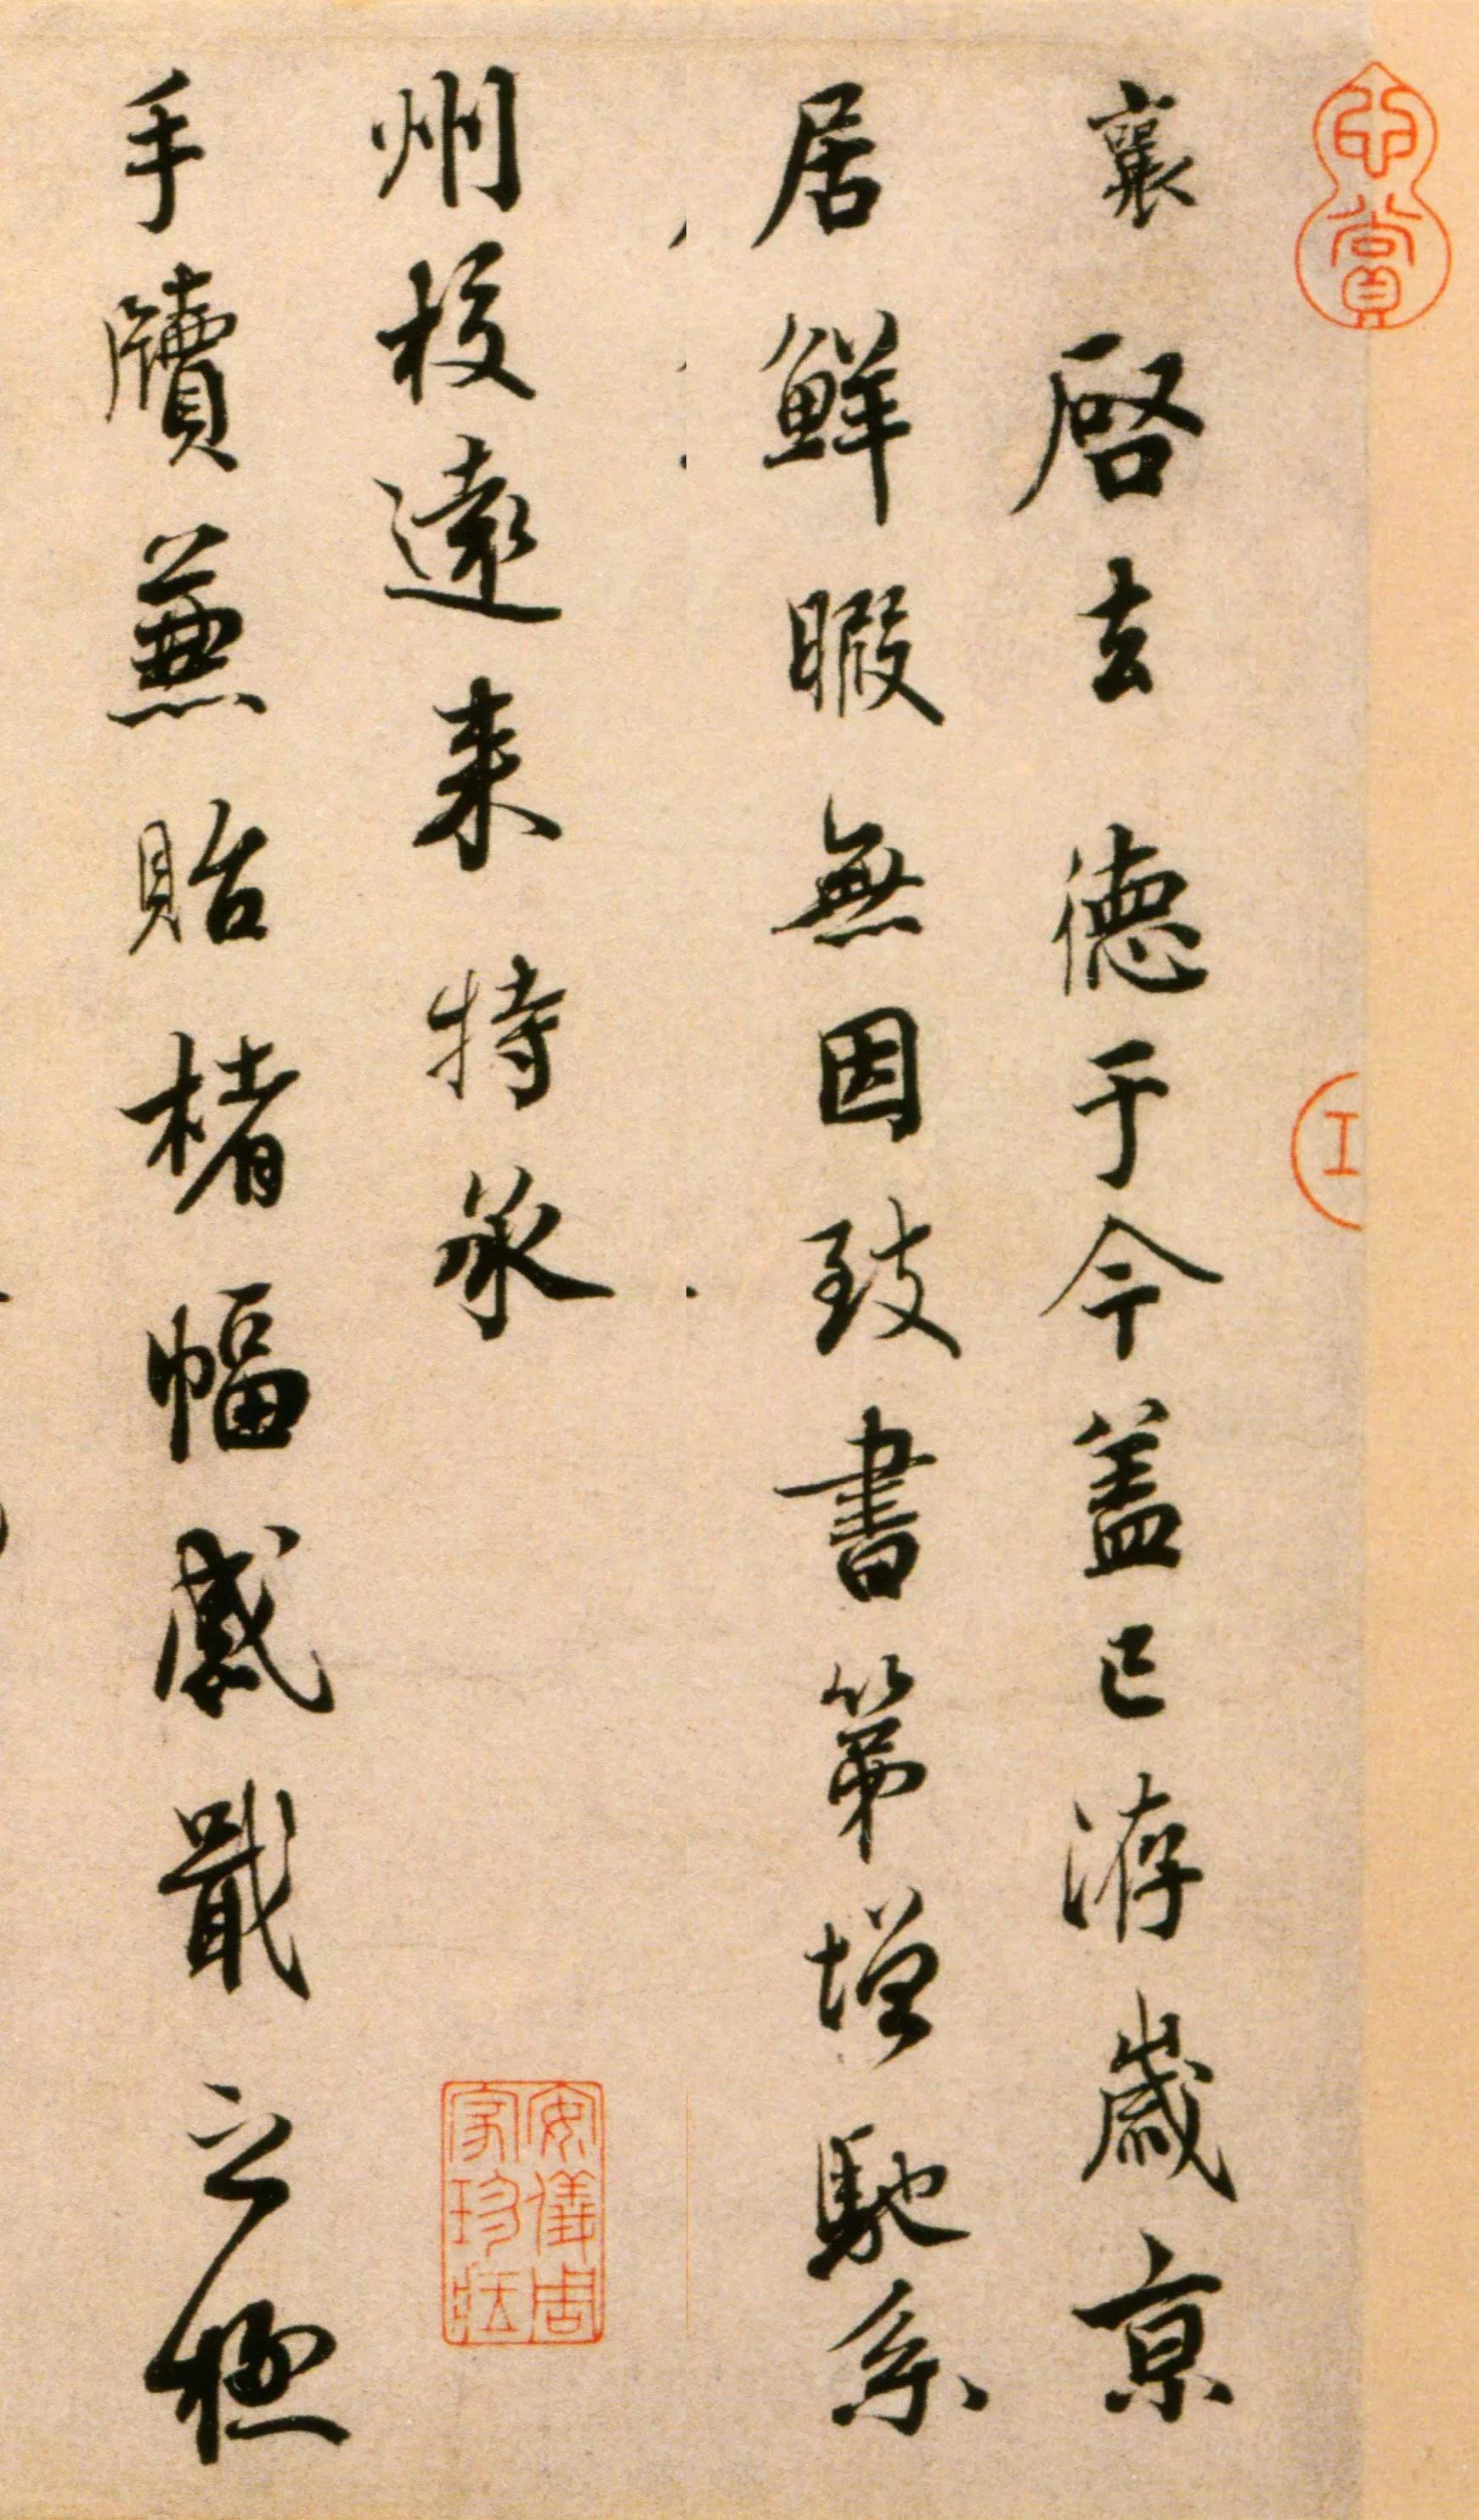 襄啓去德于今盖已洊歲京
居鮮暇無因致書第增馳系
州校遠来特承
手牘兼貽楮幅感戢之極
安儀周家珍藏